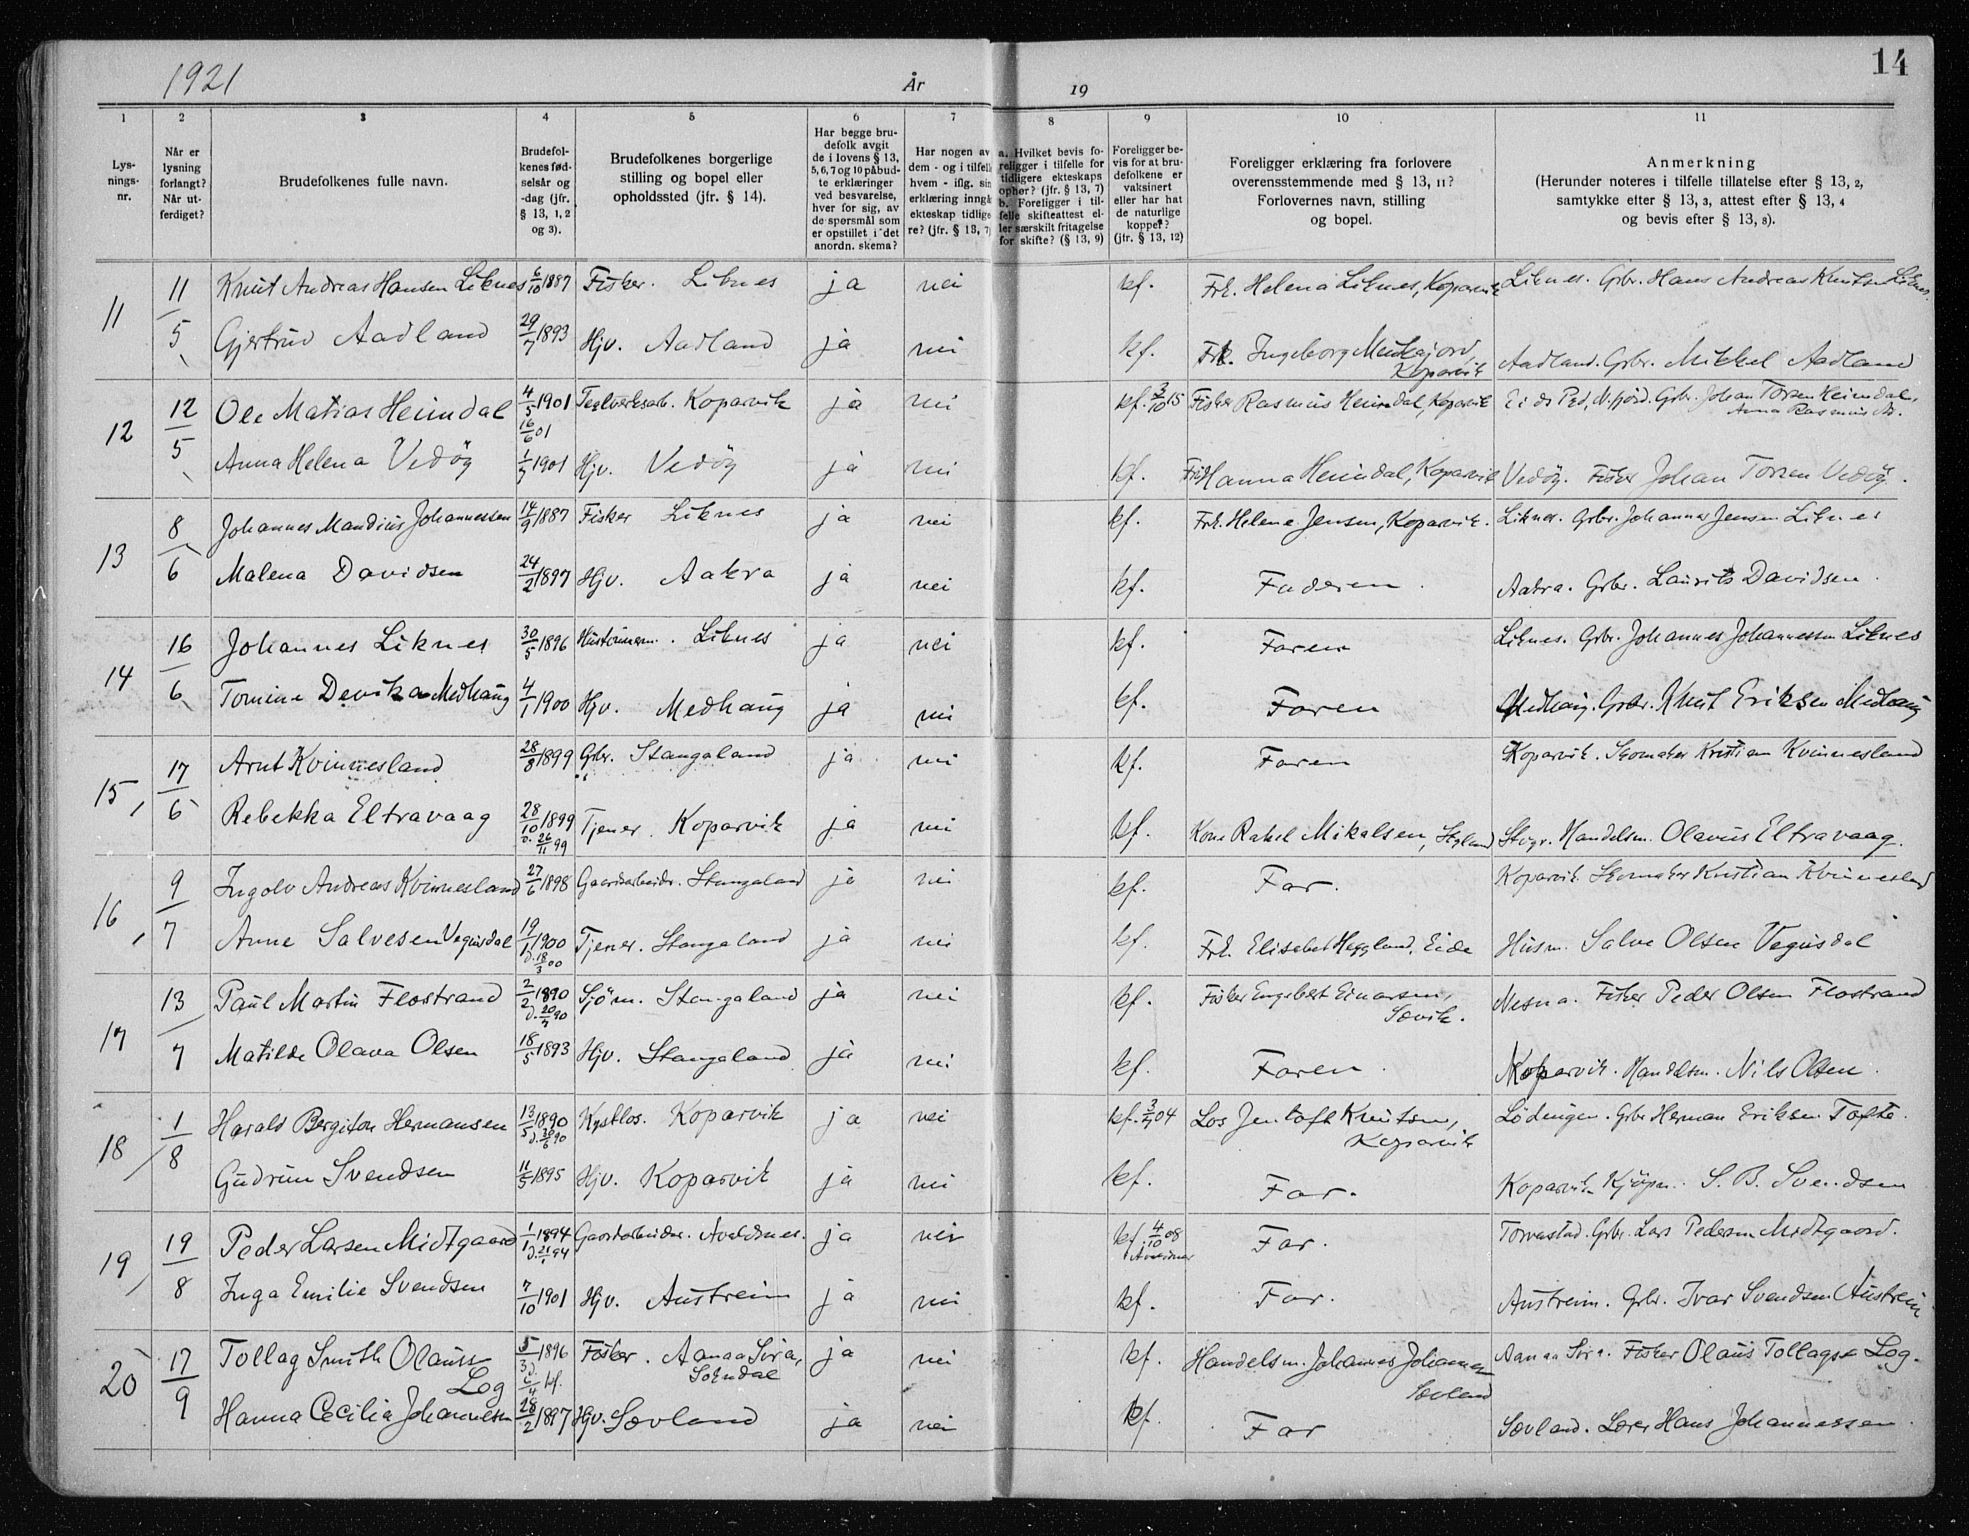 1921 År 19 14
1 2 3 4 5 6 7 8 9 10 11
Lys-
nings-
nr.
Når er
lysning
forlangt?
Når ut-
ferdiget?
Brudefolkenes fulle navn.
Brudefol-
kenes fød-
selsår og
-dag (jfr.
§ 13, 1, 2
og 3).
Brudefolkenes borgerlige
stilling og bopel eller
opholdssted (jfr. § 14).
Har begge bru-
defolk avgit
de i lovens § 13,
5, 6, 7 og 10 påbud-
te erklæringer
ved besvarelse,
hver for sig, av
de spørsmål som
er opstillet i det
anordn. skema?
Har nogen av
dem - og i tilfelle
hvem - iflg. sin
erklæring inngå
ekteskap tidlige
re? (jfr. § 13, 7)
a. Hvilket bevis fo-
religger i tilfelle for
tidligere ekteskaps
ophør? (jfr. § 13, 7)
b. Foreligger i til-
felle skifteattest el-
ler særskilt fritagelse
for skifte? (§ 13, 9)
Foreligger be-
vis for at bru-
defolkene er
vaksinert
eller har hat
de naturlige
kopper?
(jfr. § 13, 12)
Foreligger erklæring fra forlovere
overensstemmende med § 13, 11?
Forlovernes navn, stilling
og bopel.
Anmerkning
(Herunder noteres i tilfelle tillatelse efter § 13, 2,
samtykke efter § 13, 3, attest efter § 13, 4
og bevis efter § 13, 8).
11 11/5 Knut Andreas Hansen Liknes 6/10 1887 Fisker. Liknes ja nei kf. Frk. Helena Liknes, Koparvik Liknes. Grbr. Hans Andreas Knutsen Liknes.
Gjertrud Aadland 29/7 1893 Hjv. Aadland ja nei kf. Frk. Ingeborg Koparvik Aadland. Grbr. Mikkel Aadland
12 12/5 Ole Matias Heimdal 4/5 1901 16/6 01 Koparvik ja nei kf. 3/10 15 Fisker Rasmus Heimdal, Koparvik Grbr. Johan Torsen Heimdal,
Anna Helena Vedöy 1/7 1901 Hjv. Vedöy ja nei kf. Hanna Heimdal, Koparvik Vedöy. Fisker Johan Torsen Vedöy.
13 8/6 Johannes Mandius Johannessen 14/9 1887 Fisker Liknes ja nei kf. Frk. Helene Jensen, Koparvik. Liknes. Grbr. Johannes Jensen Liknes
Malena Davidsen 24/2 1897 Hjv. Aakra ja nei kf. Faderen Aakra. Grbr. Laurits Davidsen.
14 16/6 Johannes Liknes 30/5 1896 Liknes ja nei kf. Faren Liknes. Grbr. Johannes Johannessen Liknes
Tomine Devika Medhaug 4/1 1900 Hjv. Medhaug ja nei kf. Faren Medhaug. Grbr. Knut Eriksen Medhaug
15, 17/6 Arnt Kvinnesland 28/8 1899 Grbr. Stangaland ja nei kf. Faren Koparvik. Skomaker Kristian Kvinnesland
Rebekka Eltravaag 28/10 1899 d. 26/11 99 Tjener. Koparvik ja nei kf. Kone Rakel Mikalsen, Handelsm. Olavus Eltravaag.
16, 9/7 Ingolv Andreas Kvinnesland 27/6 1898 Gaardarbeider. Stangaland ja nei kf. Far. Koparvik. Skomaker Kristian Kvinnesland
Anne Salvesen Vegusdal 19/1 1900 d. 18/3 00 Tjener. Stangaland ja nei kf. Frk. Elisabet Heggland. Eide Husm. Salve Olsen Vegusdal
17 13/7 Paul Martin Flostrand 2/2 1890 Sjöm. Stangaland ja nei kf. Fisker Engebert Einarsen, Sævik. Nesna. Fisker Peder Olsen Flostrand
Matilde Olava Olsen 18/5 1893 Hjv. Stangaland ja nei kf. Faren. Koparvik. Handelsm. Nils Olsen.
18 1/8 Harald Bergiton Hermansen 13/5 1890 Kystlos. Koparvik ja nei kf. 3/7 04 Los Jentoft Knutsen, Koparvik Lödingen. Grbr Herman Eriksen Tofte.
Gudrun Svendsen 11/5 1895 Hjv. Koparvik ja nei kf. Far. Koparvik Kjöpm. S. B. Svendsen
19, 19/8 Peder Larsen Midtgaard 1/1 1894 Gaardarbeider. Avaldsnes. ja nei kf. 4/10 08 Far. Torvastad. Grbr. Lars Pedersen Midtgaard.
Inga Emilie Svendsen 7/10 1901 Hjv. Austreim ja nei kf. Far. Austreim. Grbr. Ivar Svendsen Austreim
20 17/9 Tollag Smith Olausen Log 5/3 1896 Fisker. Aanaa Sira, Sokndal ja nei kf. Handelsm. Johannes Johannesen Sævland Aanaa Sira. Fisker Olaus Tollagsen Log.
Hanna Cecilia Johannesen 28/2 1897 Hjv. Sævland ja nei kf. Far Sævland. Lærer Hans Johannessen.